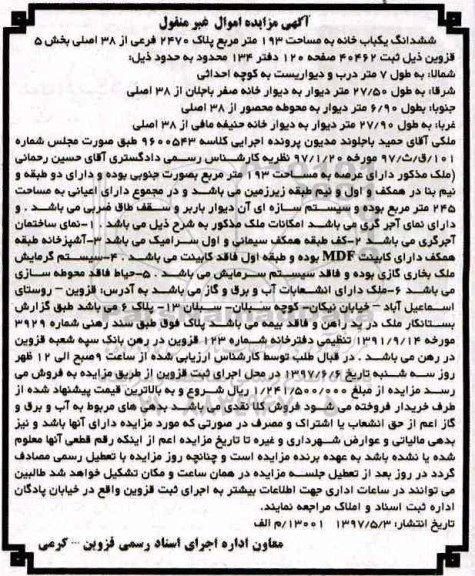 آگهی مزایده اموال غیر منقول
ششدانگ یکباب خانه به مساحت ۱۹۳ متر مربع پلاک ۲۴۷۰ فرعی از ۳۸ اصلی بخش ۵
قزوین ذیل ثبت ۴۰۴۶۲ صفحه ۱۲۰ دفتر ۱۳۴ محدود به حدود ذیل:
شمالا: به طول ۷ متر درب و دیواریست به کوچه احداثی
شرقا: به طول ۲۷/۵۰ متر دیوار به دیوار خانه صفر باجلان از ۳۸ اصلی
جنوبا: بطول ۶/۹۰ متر دیوار به محوطه محصور از ۳۸ اصلی
غربا: به طول ۲۷/۹۰ متر دیوار به دیوار خانه حنیفه مافی از ۳۸ اصلی
ملکی آقای حمید باجلوند مدیون پرونده اجرایی کلاسه ۹۶۰۰۵۴۳ طبق صورت مجلس شماره
۱۰۱/ق/ث/۹۷ مورخه ۹۷/۱/۲۰ نظریه کارشناس رسمی دادگستری آقای حسین رحمانی
(ملک مذکور دارای عرصه به مساحت ۱۹۳ متر مربع بصورت جنوبی بوده و دارای دو طبقه و
نیم بنا در همکف و اول و نیم طبقه زیرزمین می باشد و در مجموع دارای اعیانی به مساحت
۲۴۵ متر مربع بوده و سیستم سازه ای آن دیوار باربر و سقف طاق ضربی می باشد . و
دارای نمای آجر گری می باشد امکانات ملک مذکور به شرح ذیل می باشد . ۱-نمای ساختمان
آجرگری می باشد ۲-کف طبقه همکف سیمانی و اول سرامیک می باشد ۳-آشپزخانه طبقه
همکف دارای کابینت MDF بوده و طبقه اول فاقد کابینت می باشد . ۴-سیستم گرمایش
ملک بخاری گازی بوده و فاقد سیستم سرمایش می باشد . ۵-حیاط فاقد محوطه سازی
می باشد ۶-ملک دارای انشعابات آب و برق و گاز می باشد به آدرس: قزوین - روستای
اسماعیل آباد - خیابان نیکان- کوچه سبلان- سبلان ۱۳- پلاک ۶ می باشد طبق گزارش
بستانکار ملک در ید راهن و فاقد بیمه می باشد پلاک فوق طبق سند رهنی شماره ۳۹۲۹
مورخه ۱۳۹۱/۹/۱۴ تنظیمی دفترخانه شماره ۱۲۳ قزوین در رهن بانک سپه شعبه قزوین
در رهن می باشد . در قبال طلب توسط کارشناس ارزیابی شده از ساعت ۹ صبح الی ۱۲ ظهر
روز سه شنبه تاریخ ۱۳۹۷/۶/۶ در محل اجرای ثبت قزوین از طریق مزایده به فروش می
رسد مزایده از مبلغ ۱/۲۴۱/۵۰۰/۰۰۰ ریال شروع و به بالاترین قیمت پیشنهاد شده از
طرف خریدار فروخته می شود فروش کلا نقدی می باشد بدهی های مربوط به آب و برق و
گاز اعم از حق انشعاب یا اشتراک و مصرف در صورتی که مورد مزایده دارای آنها باشد و نیز
بدهی مالیاتی و عوارض شهرداری و غیره تا تاریخ مزایده اعم از اینکه رقم قطعی آنها معلوم
شده یا نشده باشد به عهده برنده مزایده است و چنانچه روز مزایده با تعطیل رسمی مصادف
گردد در روز بعد از تعطیل جلسه مزایده در همان ساعت و مکان تشکیل خواهد شد طالبین
می توانند در ساعات اداری جهت اطلاعات بیشتر به اجرای ثبت قزوین واقع در خیابان پادگان
اداره ثبت اسناد و املاک مراجعه نمایند.
تاریخ انتشار: ۱۳۹۷/۵/۳ ۱۳۰۰۱/م الف
معاون اداره اجرای اسناد رسمی قزوین - کرمی